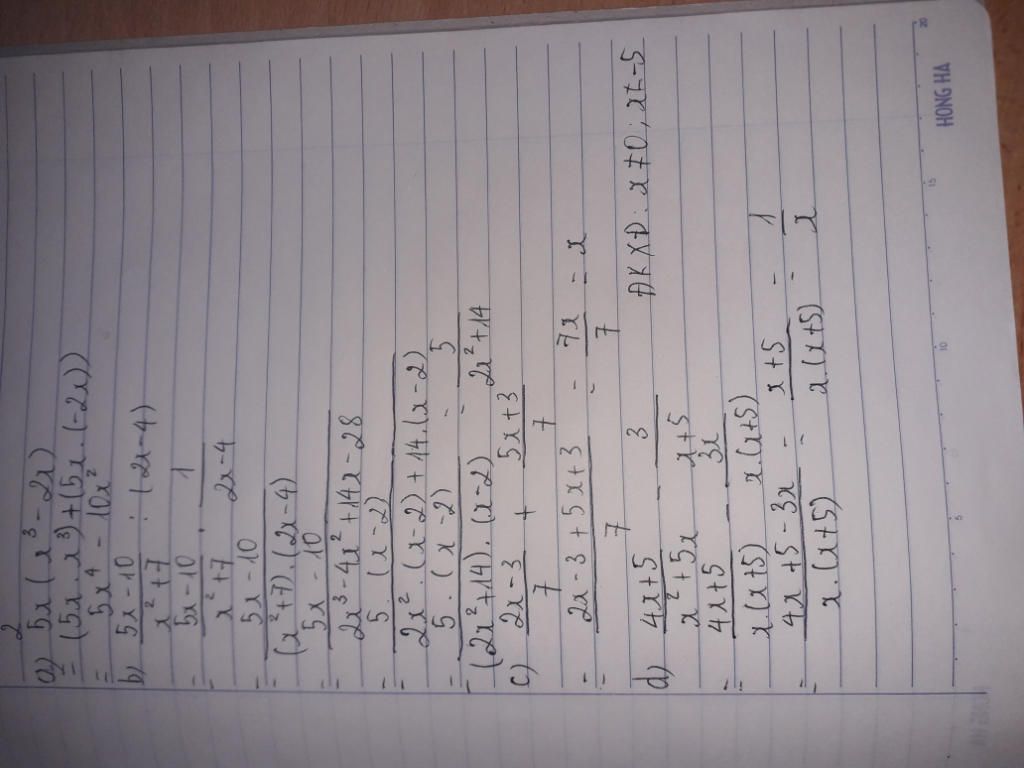 2
a) 5x(x³ - 2x)
= (5x.x³)+(5x.(-2x))
= 5x⁴ - 10x²
b) (5x-10)/(x²+7) : (2x-4)
= (5x-10)/(x²+7) . 1/(2x-4)
= (5x-10)/((x²+7).(2x-4))
= (5x-10)/(2x³-4x²+14x-28)
= (5(x-2))/(2x².(x-2)+14.(x-2))
= (5.(x-2))/((2x²+14).(x-2)) = 5/(2x²+14)
c) (2x-3)/7 + (5x+3)/7
= (2x-3+5x+3)/7 = 7x/7 = x
d) (4x+5)/(x²+5x) - 3/(x+5) ĐKXĐ: x≠0; x≠-5
= (4x+5)/(x(x+5)) - 3x/(x(x+5))
= (4x+5-3x)/(x.(x+5)) = (x+5)/(x.(x+5)) = 1/x
5 10 15 20
HONG HA